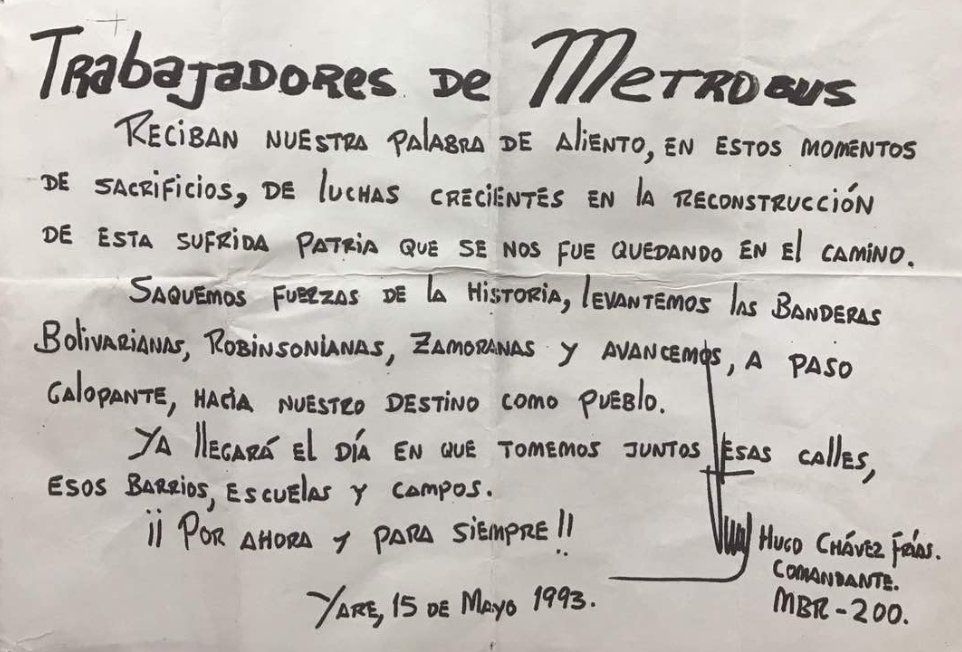 Trabajadores de Metrobus
Reciban nuestra palabra de aliento, en estos momentos
de sacrificios, de luchas crecientes en la reconstrucción
de esta sufrida patria que se nos fue quedando en el camino.
Saquemos fuerzas de la Historia, levantemos las Banderas
Bolivarianas, Robinsonianas, Zamoranas y avancemos, a paso
galopante, hacia nuestro destino como pueblo.
Ya llegará el día en que tomemos juntos esas calles,
esos Barrios, escuelas y campos.
¡¡ Por ahora y para siempre !!
Hugo Chávez Frías.
Comandante.
MBR-200.
Yare, 15 de Mayo 1993.